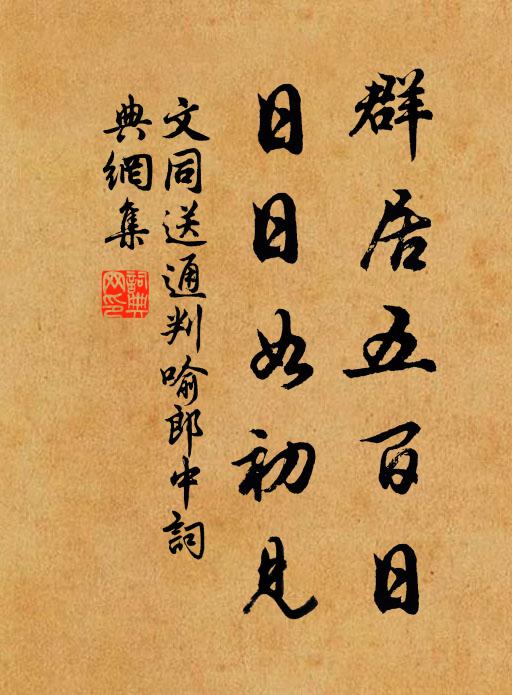 群居五百日
日日如初見
文同送通判喻郎中詞
典網集
詞典網印